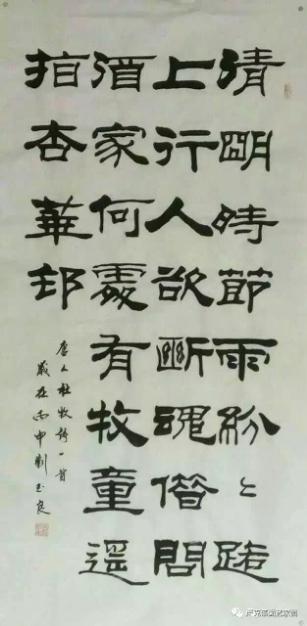 清朙時節雨紛々路
上行人欲斷魂借問
酒家何處有牧童遥
指杏華邨
唐人杜牧詩一首
歲在丙申劉玉良